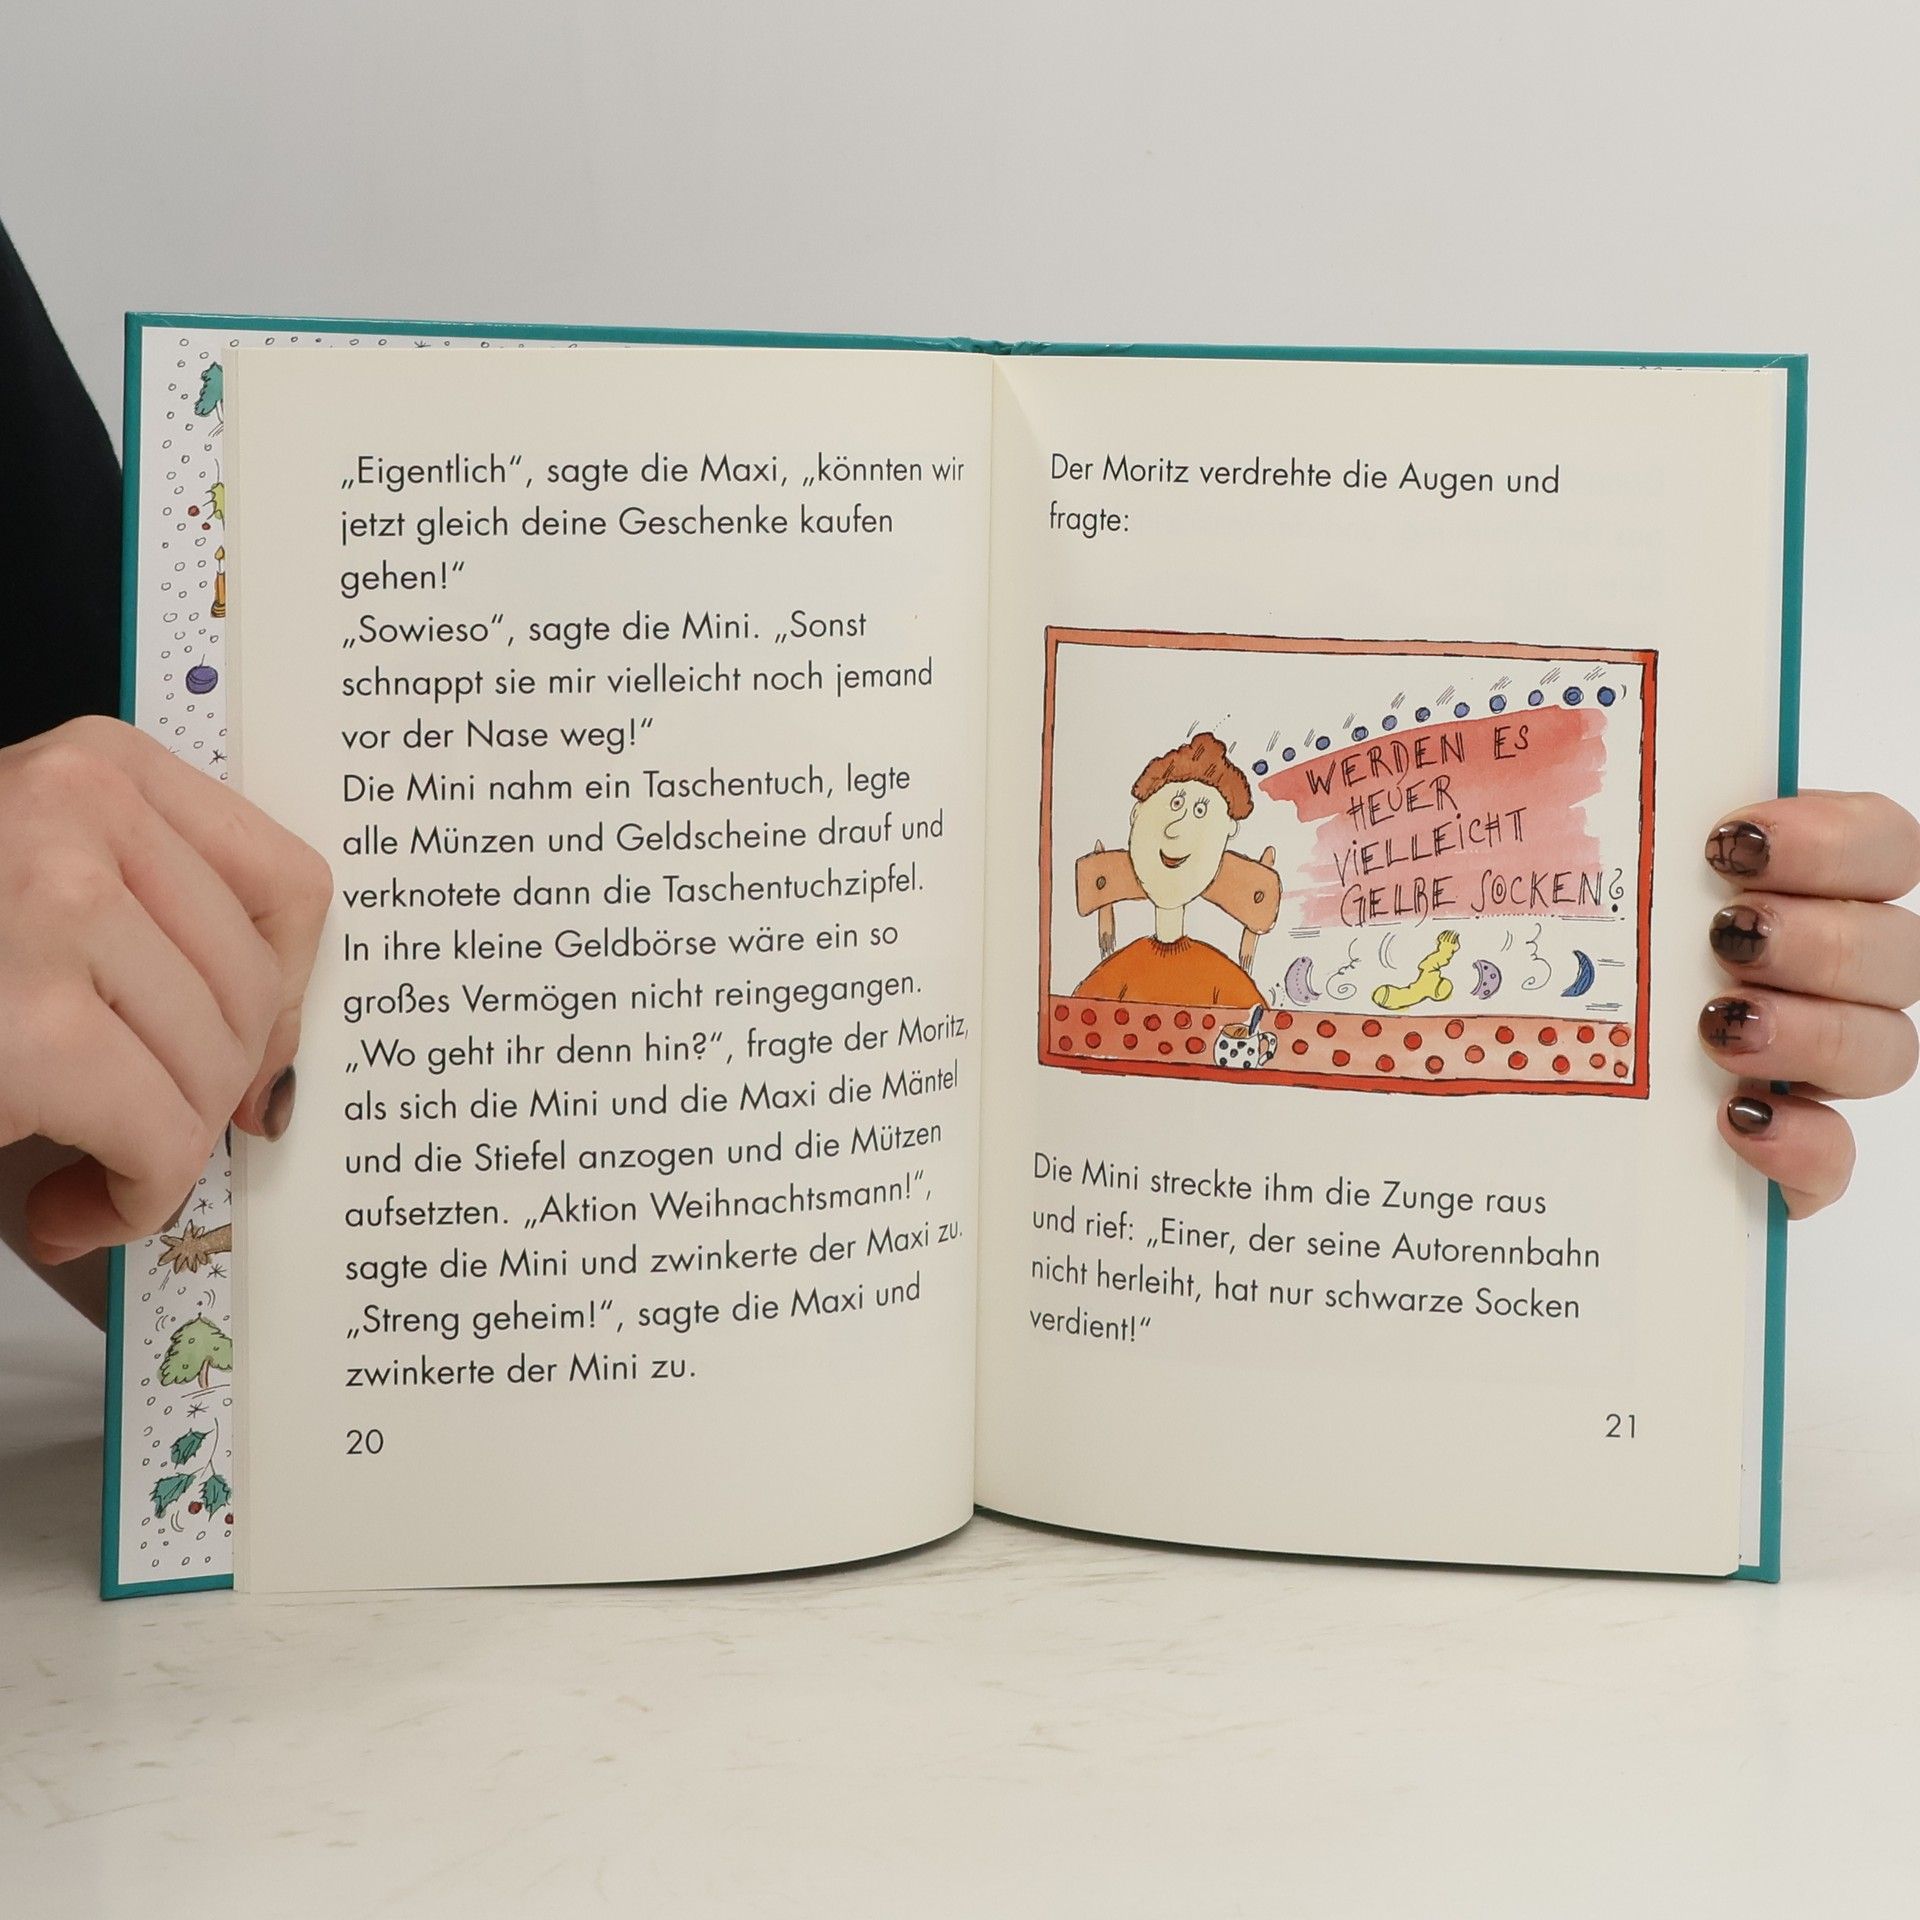 „Eigentlich“, sagte die Maxi, „könnten wir
jetzt gleich deine Geschenke kaufen
gehen!“
„Sowieso“, sagte die Mini. „Sonst
schnappt sie mir vielleicht noch jemand
vor der Nase weg!“
Die Mini nahm ein Taschentuch, legte
alle Münzen und Geldscheine drauf und
verknotete dann die Taschentuchzipfel.
In ihre kleine Geldbörse wäre ein so
großes Vermögen nicht reingegangen.
„Wo geht ihr denn hin?“, fragte der Moritz,
als sich die Mini und die Maxi die Mäntel
und die Stiefel anzogen und die Mützen
aufsetzten. „Aktion Weihnachtsmann!“,
sagte die Mini und zwinkerte der Maxi zu.
„Streng geheim!“, sagte die Maxi und
zwinkerte der Mini zu.
20
Der Moritz verdrehte die Augen und
fragte:
WERDEN ES
HEUER
VIELLEICHT
GELBE SOCKEN?
Die Mini streckte ihm die Zunge raus
und rief: „Einer, der seine Autorennbahn
nicht herleiht, hat nur schwarze Socken
verdient!“
21